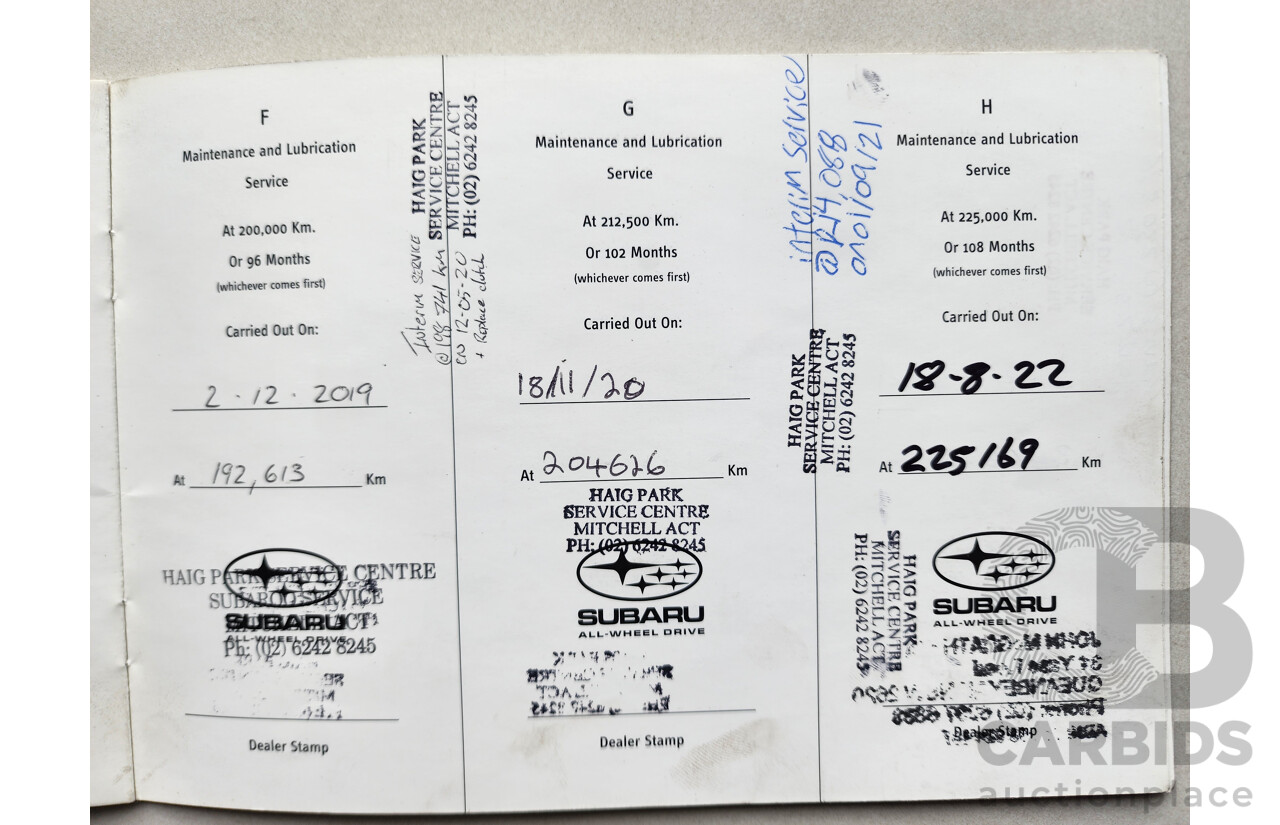 F
Maintenance and Lubrication
Service
At 200,000 Km.
Or 96 Months
(whichever comes first)
Carried Out On:
2·12·2019
At 192,613 Km
HAIG PARK SERVICE CENTRE
SUBAROO SERVICE
MITCHELL ACT
Ph: (02) 6242 8245
SUBARU
ALL-WHEEL DRIVE
Dealer Stamp
HAIG PARK
SERVICE CENTRE
MITCHELL ACT
PH: (02) 6242 8245
Interim SERVICE
@ 198 741 km
ON 12-05-20
+ Replace clutch
G
Maintenance and Lubrication
Service
At 212,500 Km.
Or 102 Months
(whichever comes first)
Carried Out On:
18/11/20
At 204626 Km
HAIG PARK
SERVICE CENTRE
MITCHELL ACT
PH: (02) 6242 8245
SUBARU
ALL-WHEEL DRIVE
Dealer Stamp
interim service
@214,088
on 01/09/21
HAIG PARK
SERVICE CENTRE
MITCHELL ACT
PH: (02) 6242 8245
H
Maintenance and Lubrication
Service
At 225,000 Km.
Or 108 Months
(whichever comes first)
Carried Out On:
18-8-22
At 225169 Km
HAIG PARK
SERVICE CENTRE
MITCHELL ACT
PH: (02) 6242 8245
SUBARU
ALL-WHEEL DRIVE
Dealer Stamp
B
CARBIDS
auctionplace